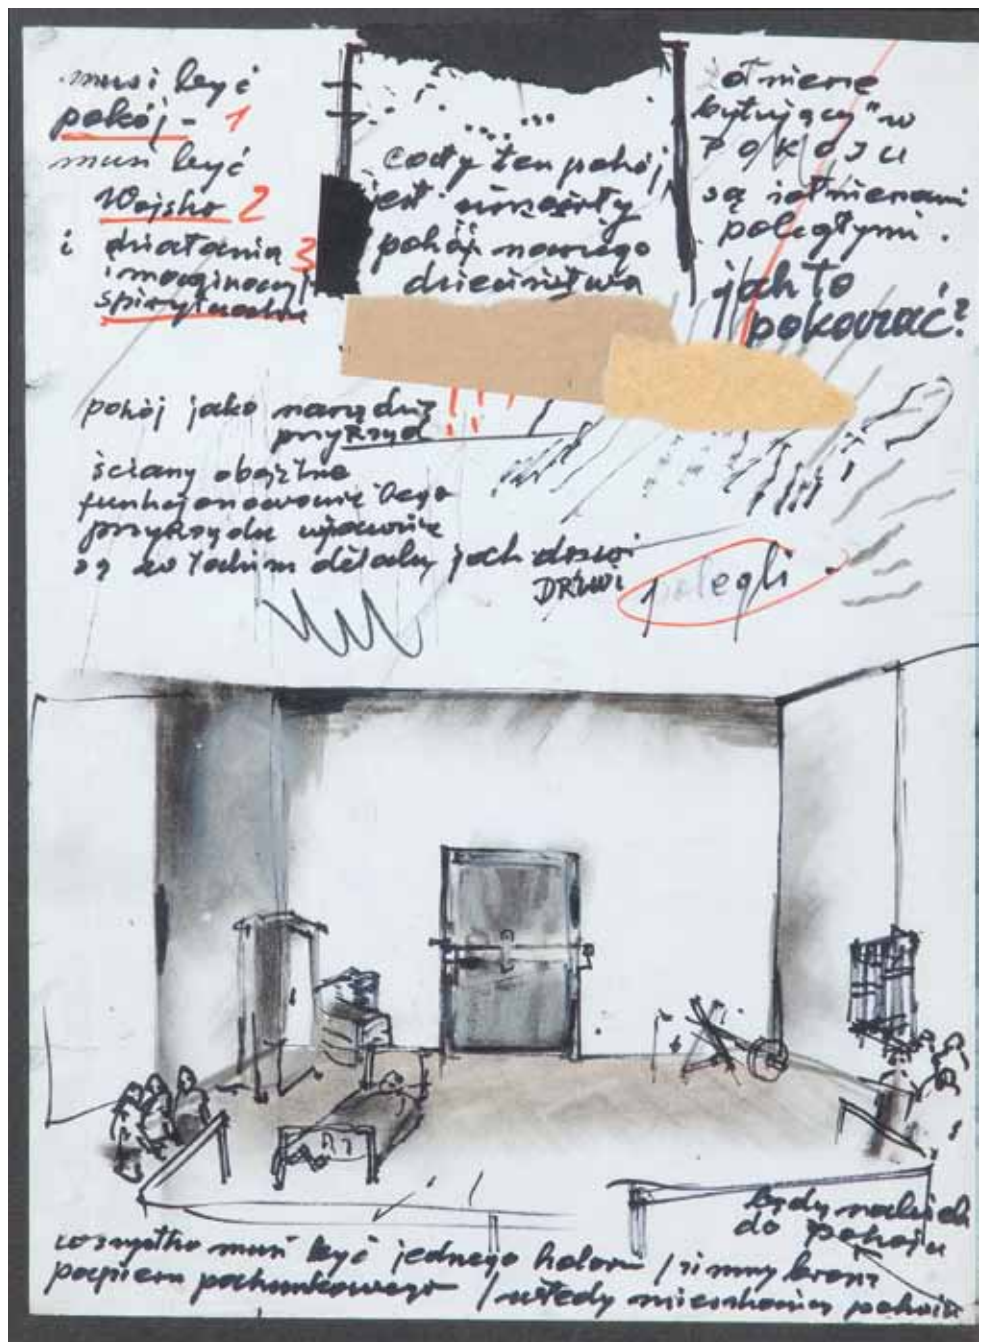 musi być
pokój - 1
musi być
Wojsko 2
i działania 3
imaginacyj
spirytualne
cały ten pokój
jest
pokój mojego
dzieciństwa
żołnierze
bytujący" w
POKOJU
są żołnierzami
poległymi.
jak to
pokazać?
pokój jako narzędzie !!
przyrząd
ściany obojętne
funkcjonowanie tego
przyrządu
są w takim detalu jak drzwi
DRZWI
polegli
będą
do pokoju
wszystko musi być jednego koloru / zimny brąz
papieru pakunkowego / wtedy mieszkańcy pokoju